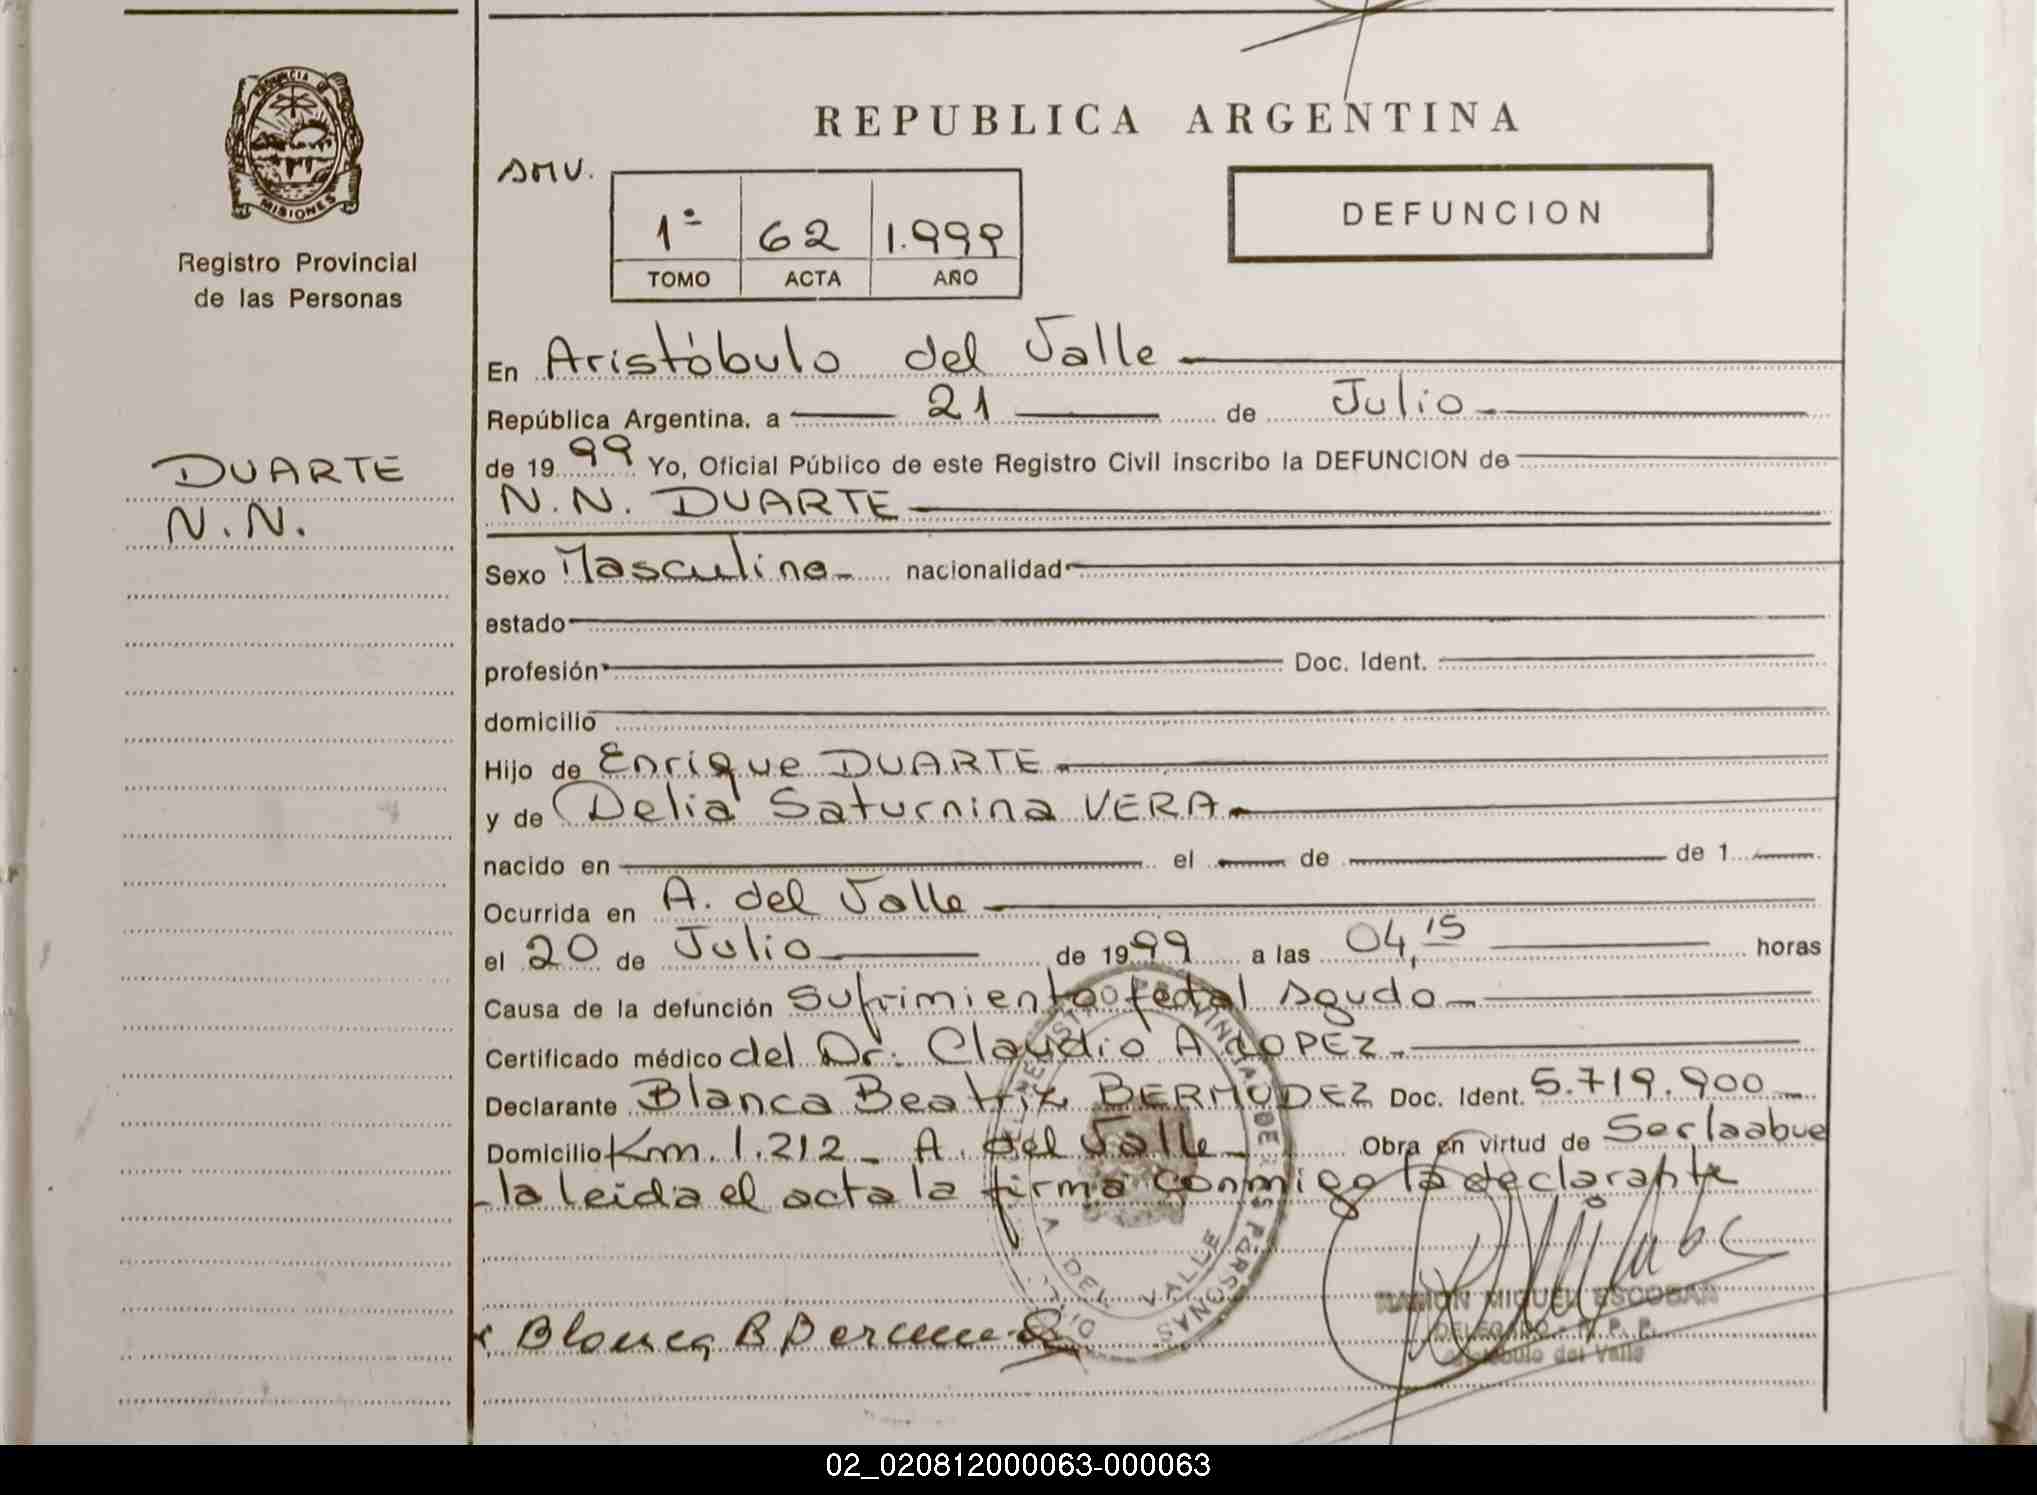 REPUBLICA ARGENTINA
PROVINCIA DE
MISIONES
Registro Provincial
de las Personas
SMV.
1º 62 1.999
TOMO ACTA AÑO
DEFUNCION
DUARTE
N.N.
En Aristóbulo del Valle
República Argentina, a 21 de Julio
de 1999 Yo, Oficial Público de este Registro Civil inscribo la DEFUNCION de
N.N. DUARTE
Sexo Masculino nacionalidad
estado
profesión Doc. Ident.
domicilio
Hijo de Enrique DUARTE
y de Delia Saturnina VERA
nacido en el de de 1
Ocurrida en A. del Valle
el 20 de Julio de 1999 a las 04,15 horas
Causa de la defunción Sufrimiento fetal agudo
Certificado médico del Dr. Claudio A LOPEZ
Declarante Blanca Beatriz BERMUDEZ Doc. Ident. 5.719.900
Domicilio Km. 1.212 A. del Valle Obra en virtud de Ser la abue
la leida el acta la firma conmigo la declarante
REGISTRO PROVINCIAL DE LAS PERSONAS
A DEL VALLE
Blanca B Bermudez
RAMON MIGUEL ESCOBAR
DELEGADO R. P. P.
Aristóbulo del Valle
02_020812000063-000063